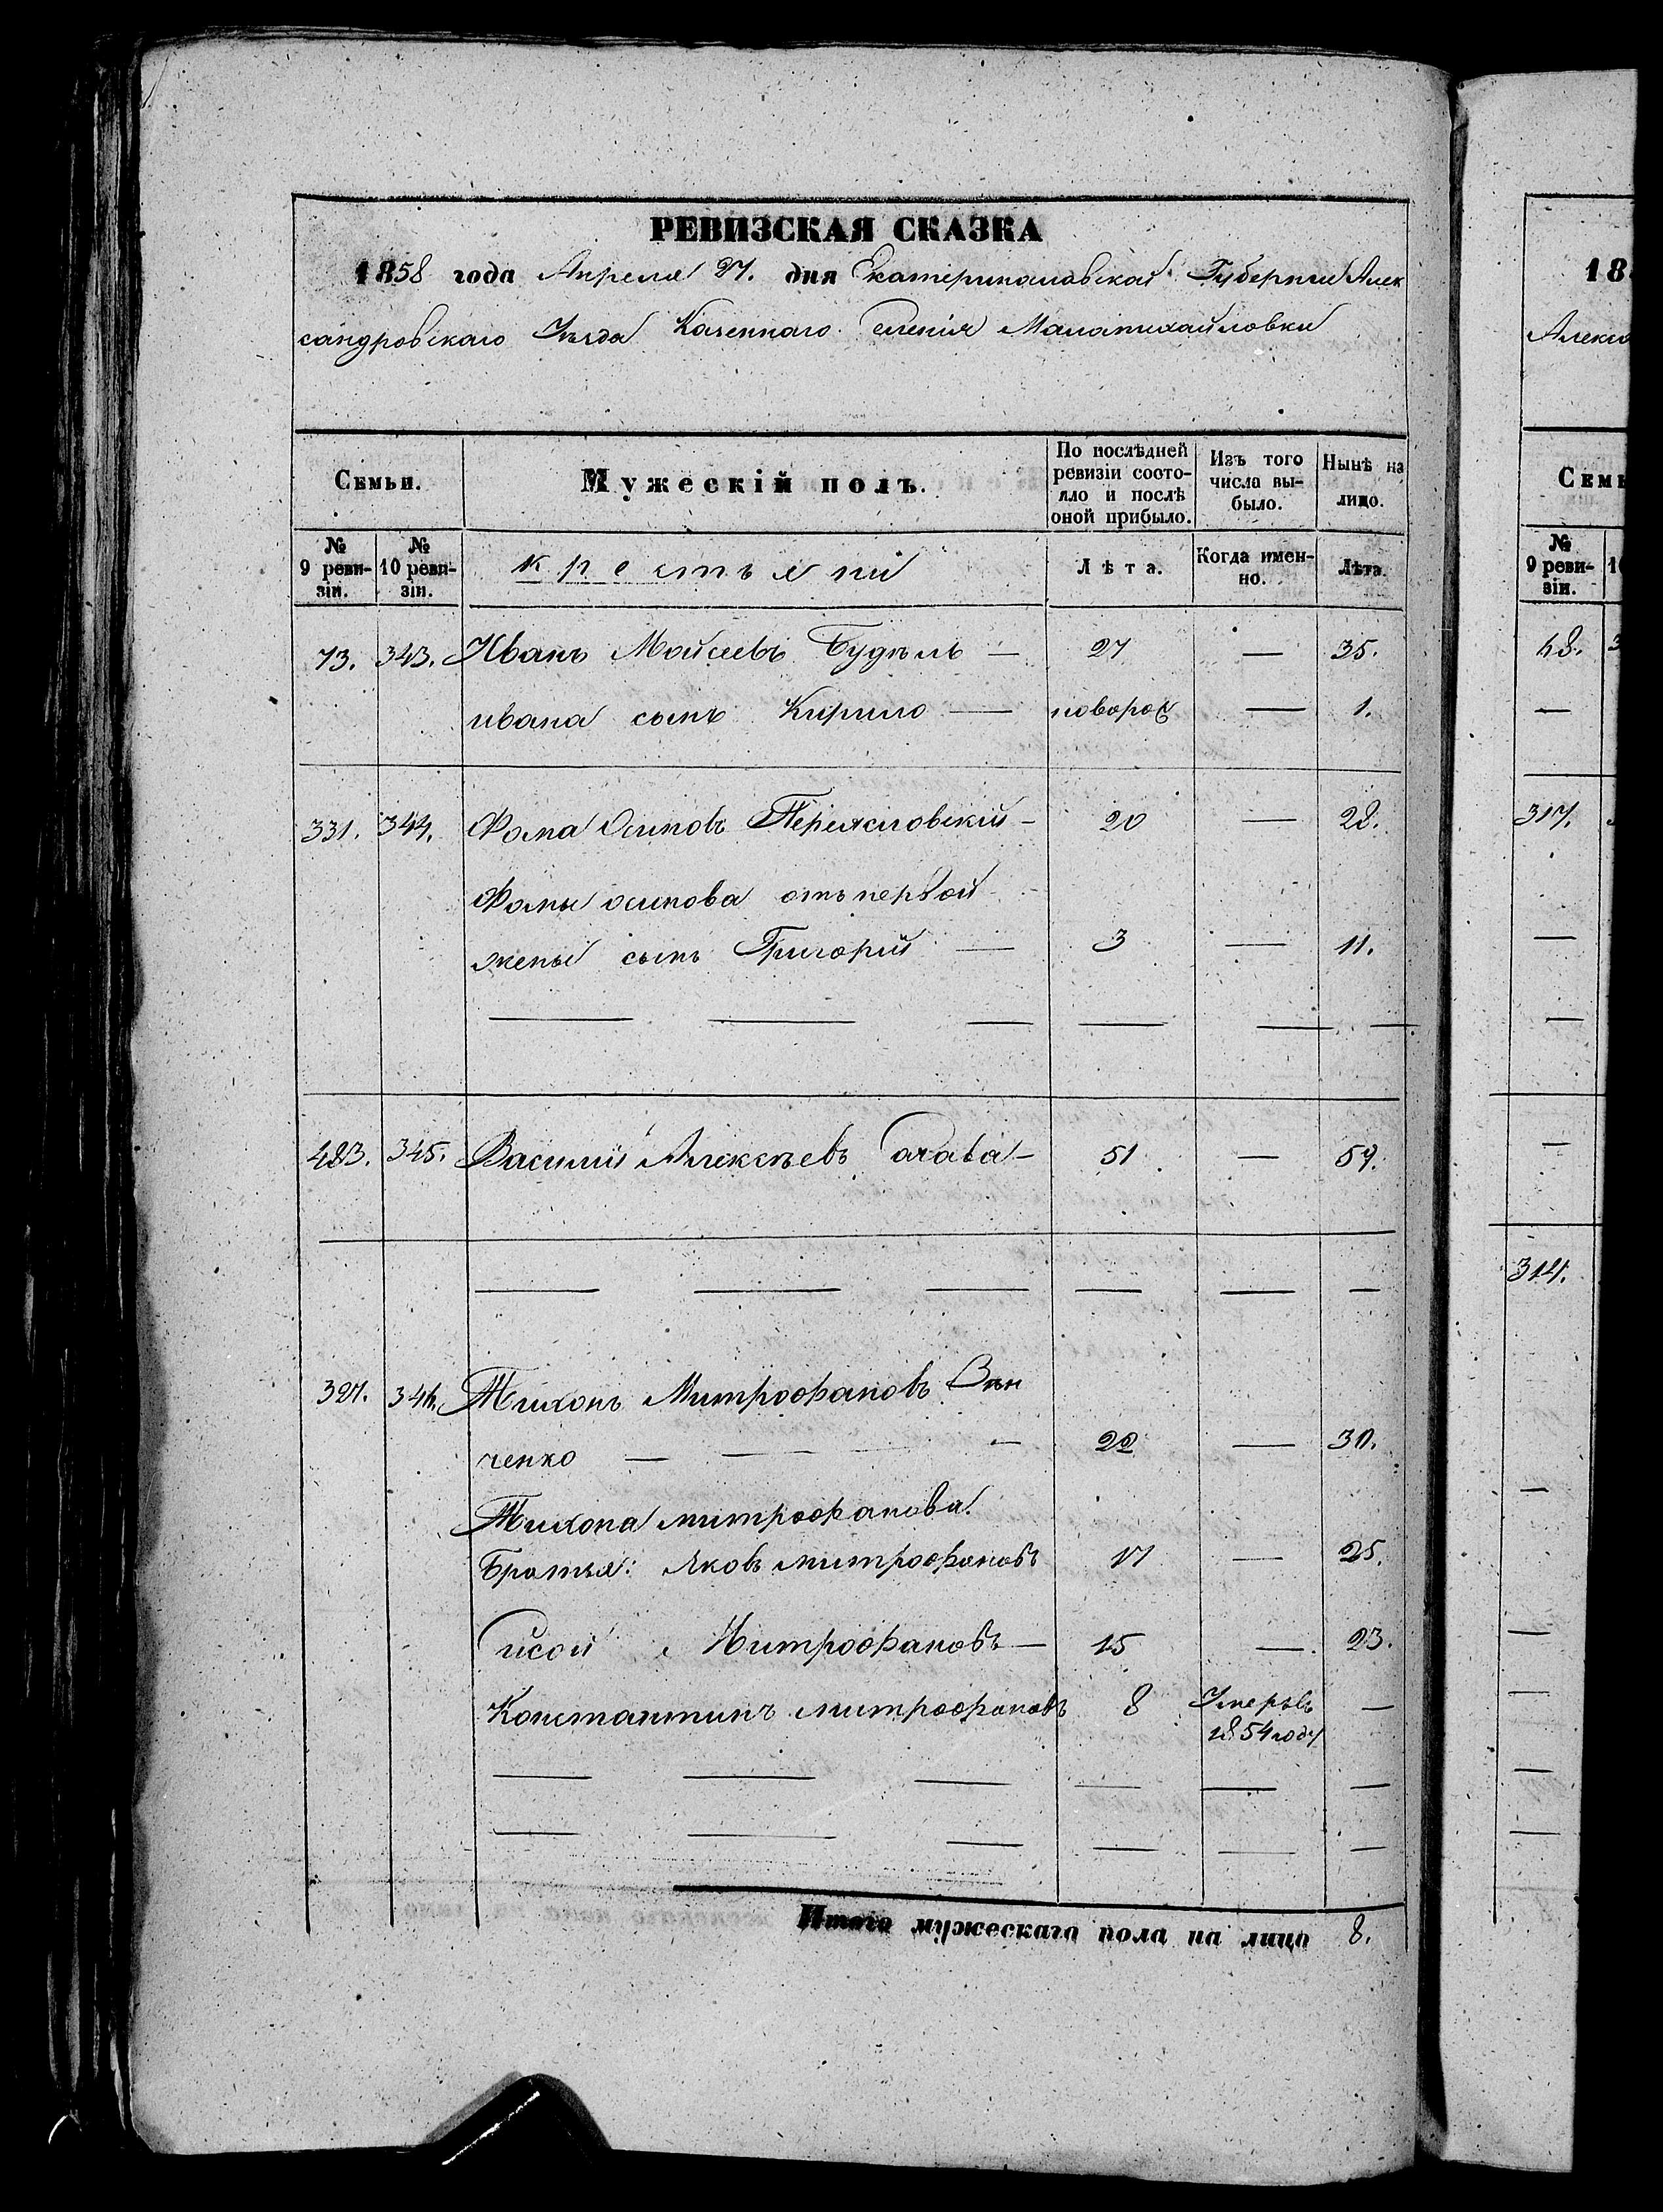 РЕВИЗСКАЯ СКАЗКА
1858 года Апреля 27. дня Екатеринославской Губернии Алек
сандровскаго Уѣзда Казеннаго селенія Маламихайловки
Семьи. Мужескій полъ. По послѣдней ревизіи состояло и послѣ оной прибыло. Изъ того числа выбыло. Нынѣ на лицо.
№ 9 ревизіи. № 10 ревизіи. крестьяни Лѣта. Когда именно. Лѣта.
73. 343. Иванъ Мойсеевъ — 27 — 35.
ивана сынъ Кирило — новорож — 1.
331. 344. Фома Осиповъ — 20 — 28.
Фомы осипова отъ первой
жены сынъ Григорий — 3 — 11.
483. 345. Василий Алексѣевъ — 51 — 59.
327. Тихонъ Митрофановъ
ченко — 22 — 30.
Тихона митрофанова
Братья: Яковъ митрофановъ 17 — 25.
Сисой Митрофановъ — 15 — 23.
Константинъ митрофановъ 8 Умеръ въ —
1854 году
Итого мужескаго пола на лицо 8.
18
Алекса
Семь
№ 9 ревизіи. 1
48. 3
317.
314.